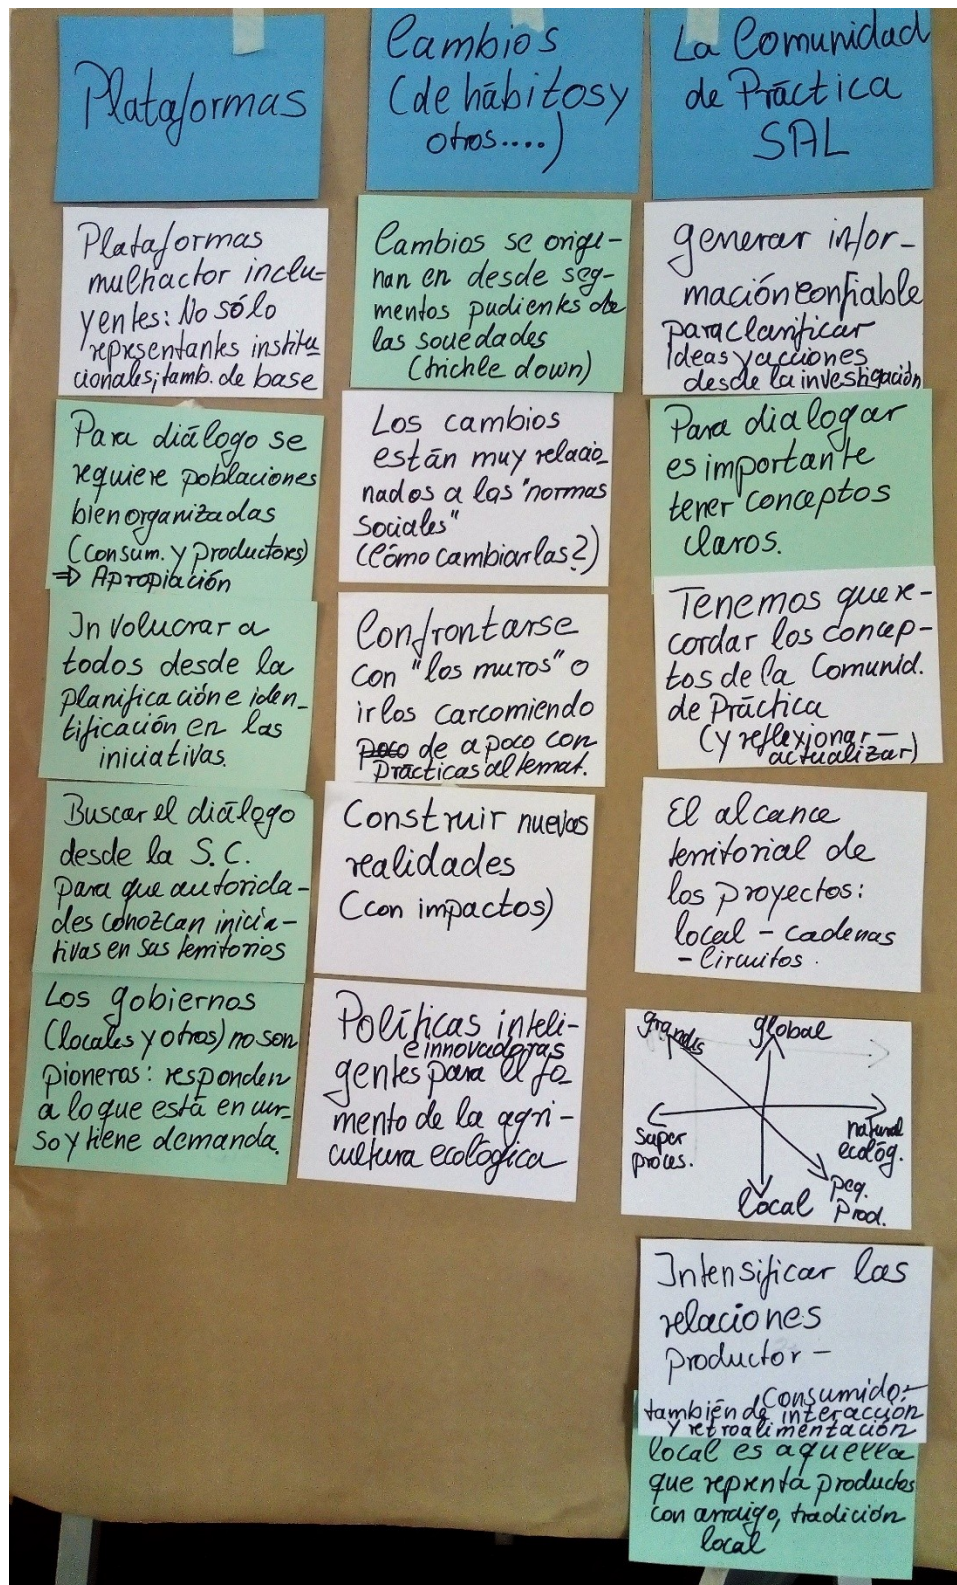 Plataformas
Plataformas
multiactor inclu-
yentes: No sólo
representantes institu-
cionales; tamb. de base
Para diálogo se
requiere poblaciones
bien organizadas
(consum. y productores)
⇒ Apropiación
Involucrar a
todos desde la
planificación e iden-
tificación en las
iniciativas.
Buscar el diálogo
desde la S.C.
para que autorida-
des conozcan inicia-
tivas en sus territorios
Los gobiernos
(locales y otros) no son
pioneros: responden
a lo que está en cur-
so y tiene demanda.
Cambios
(de hábitos y
otros....)
Cambios se origi-
nan en desde seg-
mentos pudientes de
las sociedades
(trichle down)
Los cambios
están muy relacio-
nados a las "normas
sociales"
(Cómo cambiarlas?)
Confrontarse
con "los muros" o
irlos carcomiendo
poco de a poco con
prácticas alternat.
Construir nuevas
realidades
(con impactos)
Políticas inteli-
e innovadoras
gentes para el fo-
mento de la agri-
cultura ecológica
La Comunidad
de Práctica
SAL
generar infor-
mación confiable
para clarificar
ideas y acciones
desde la investigación
Para dialogar
es importante
tener conceptos
claros.
Tenemos que re-
cordar los concep-
tos de la Comunid.
de Práctica
(y reflexionar-
actualizar)
El alcance
territorial de
los proyectos:
local - cadenas
- Circuitos.
grandes
global
super
proces.
natural
ecológ.
local
peq.
Prod.
Intensificar las
relaciones
productor -
Consumidor
también de interacción
y retroalimentación
local es aquella
que reprenta productos
con arraigo, tradición
local